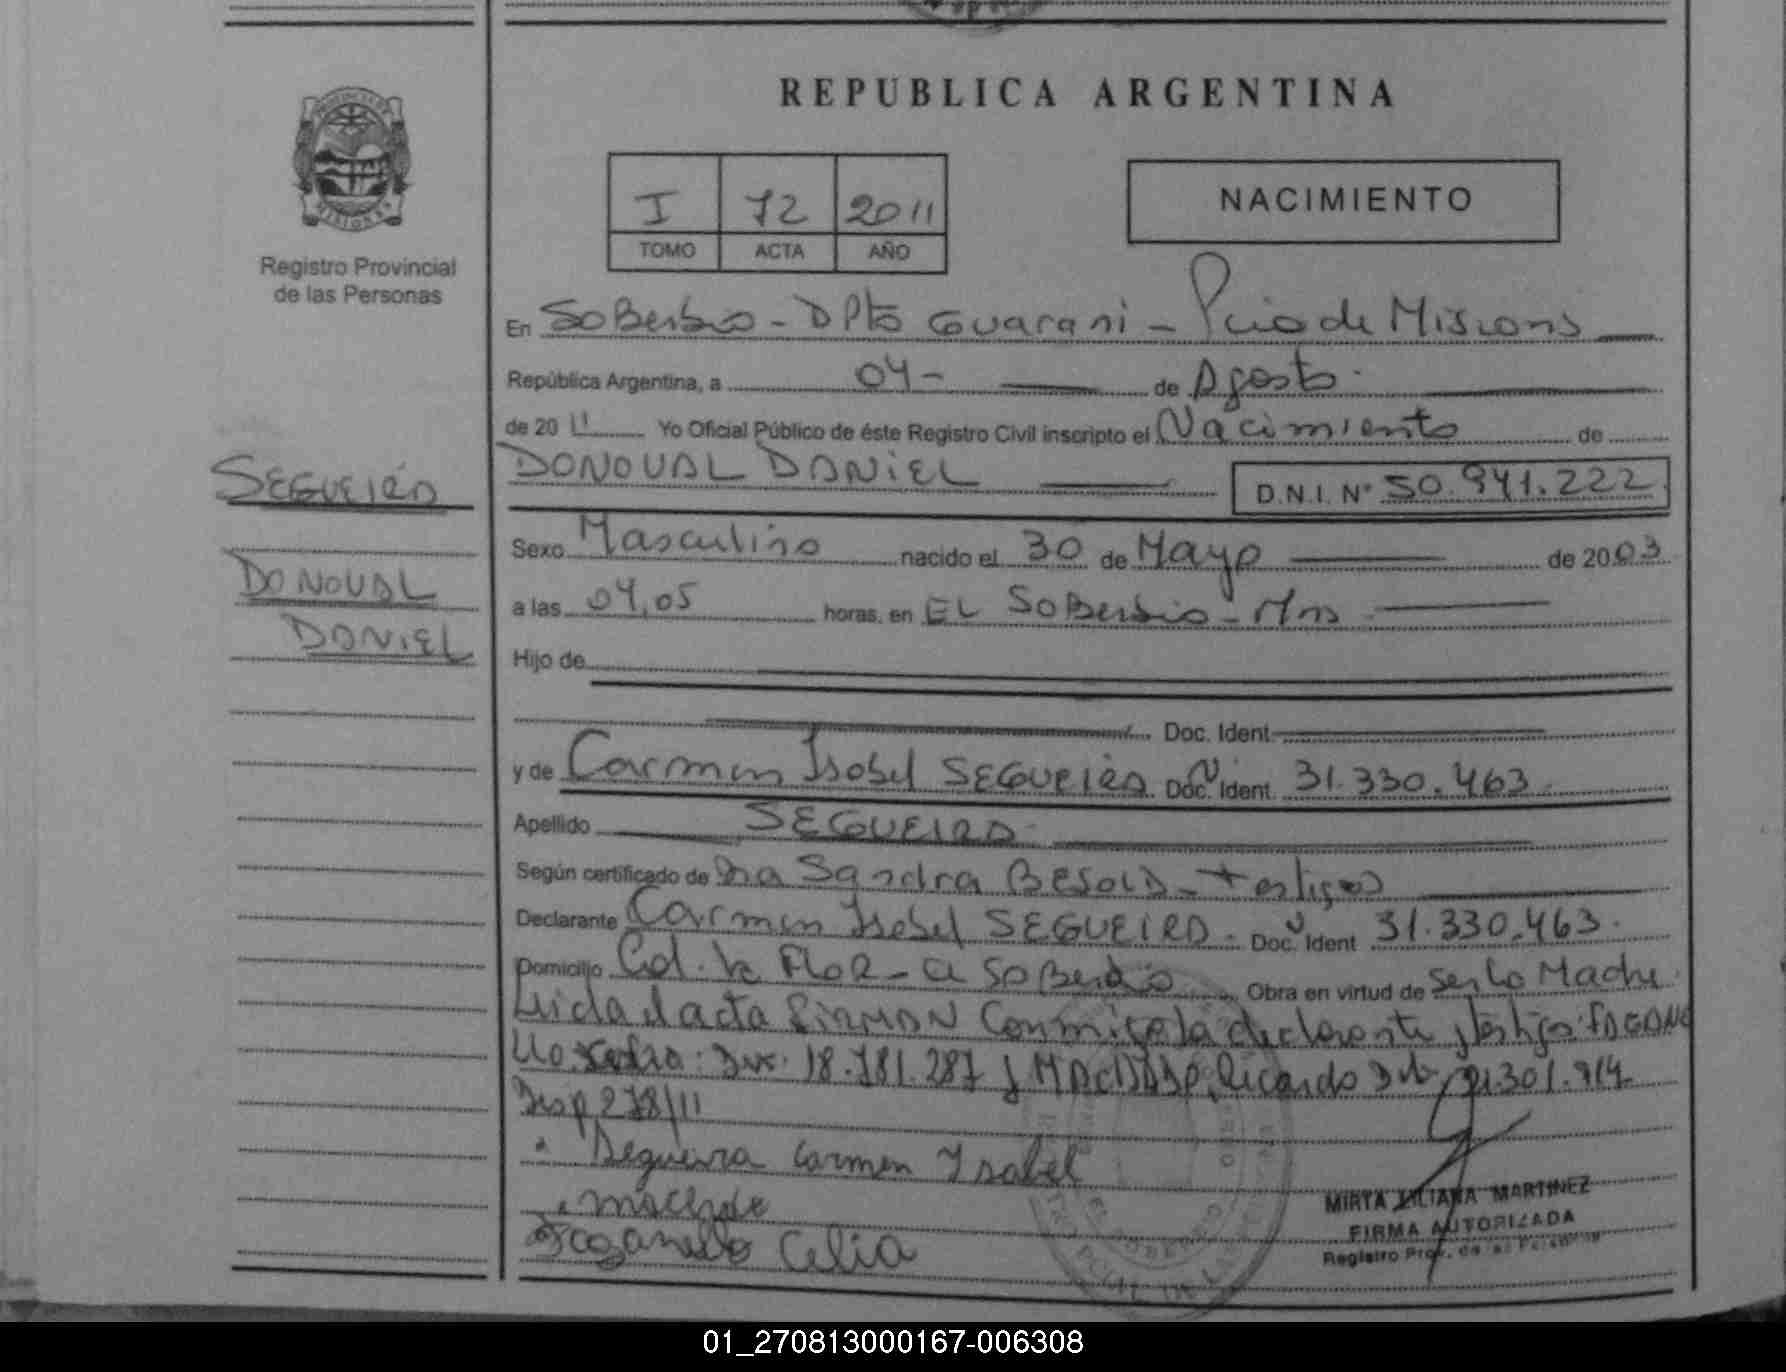 REPUBLICA ARGENTINA
PROVINCIA DE
MISIONES
Registro Provincial
de las Personas
I 72 2011
TOMO ACTA AÑO
NACIMIENTO
En SoBerbio - DPto Guarani - Pcia de Misions
República Argentina, a 04 - de Agosto.
de 20 11 Yo Oficial Público de éste Registro Civil inscripto el Nacimiento de
DONOVAL DANIEL D.N.I. Nº 50.941.222
SEGUEIRA
DONOVAL
DANIEL
Sexo Masculino nacido el 30 de Mayo de 2003
a las 04,05 horas, en EL SoBerbio - Mns
Hijo de
Doc. Ident.
y de Carmen Isabel SEGUEIRA Doc. Ident. 31.330.463
Apellido SEGUEIRA
Según certificado de Dra Sandra BESOLD - testigos
Declarante Carmen Isabel SEGUEIRA. Doc. Ident 31.330.463.
Domicilio Col. la FLOR - El SoBerbio Obra en virtud de ser la Madre
Leida el acta FIRMAN Conmigo la declarante y testigos:
18.781.287 y Ricardo .301.914
Disp 278/11
Segueira Carmen Ysabel
Celia
MIRTA LILIANA MARTINEZ
FIRMA AUTORIZADA
Registro Prov. de las Personas
01_270813000167-006308